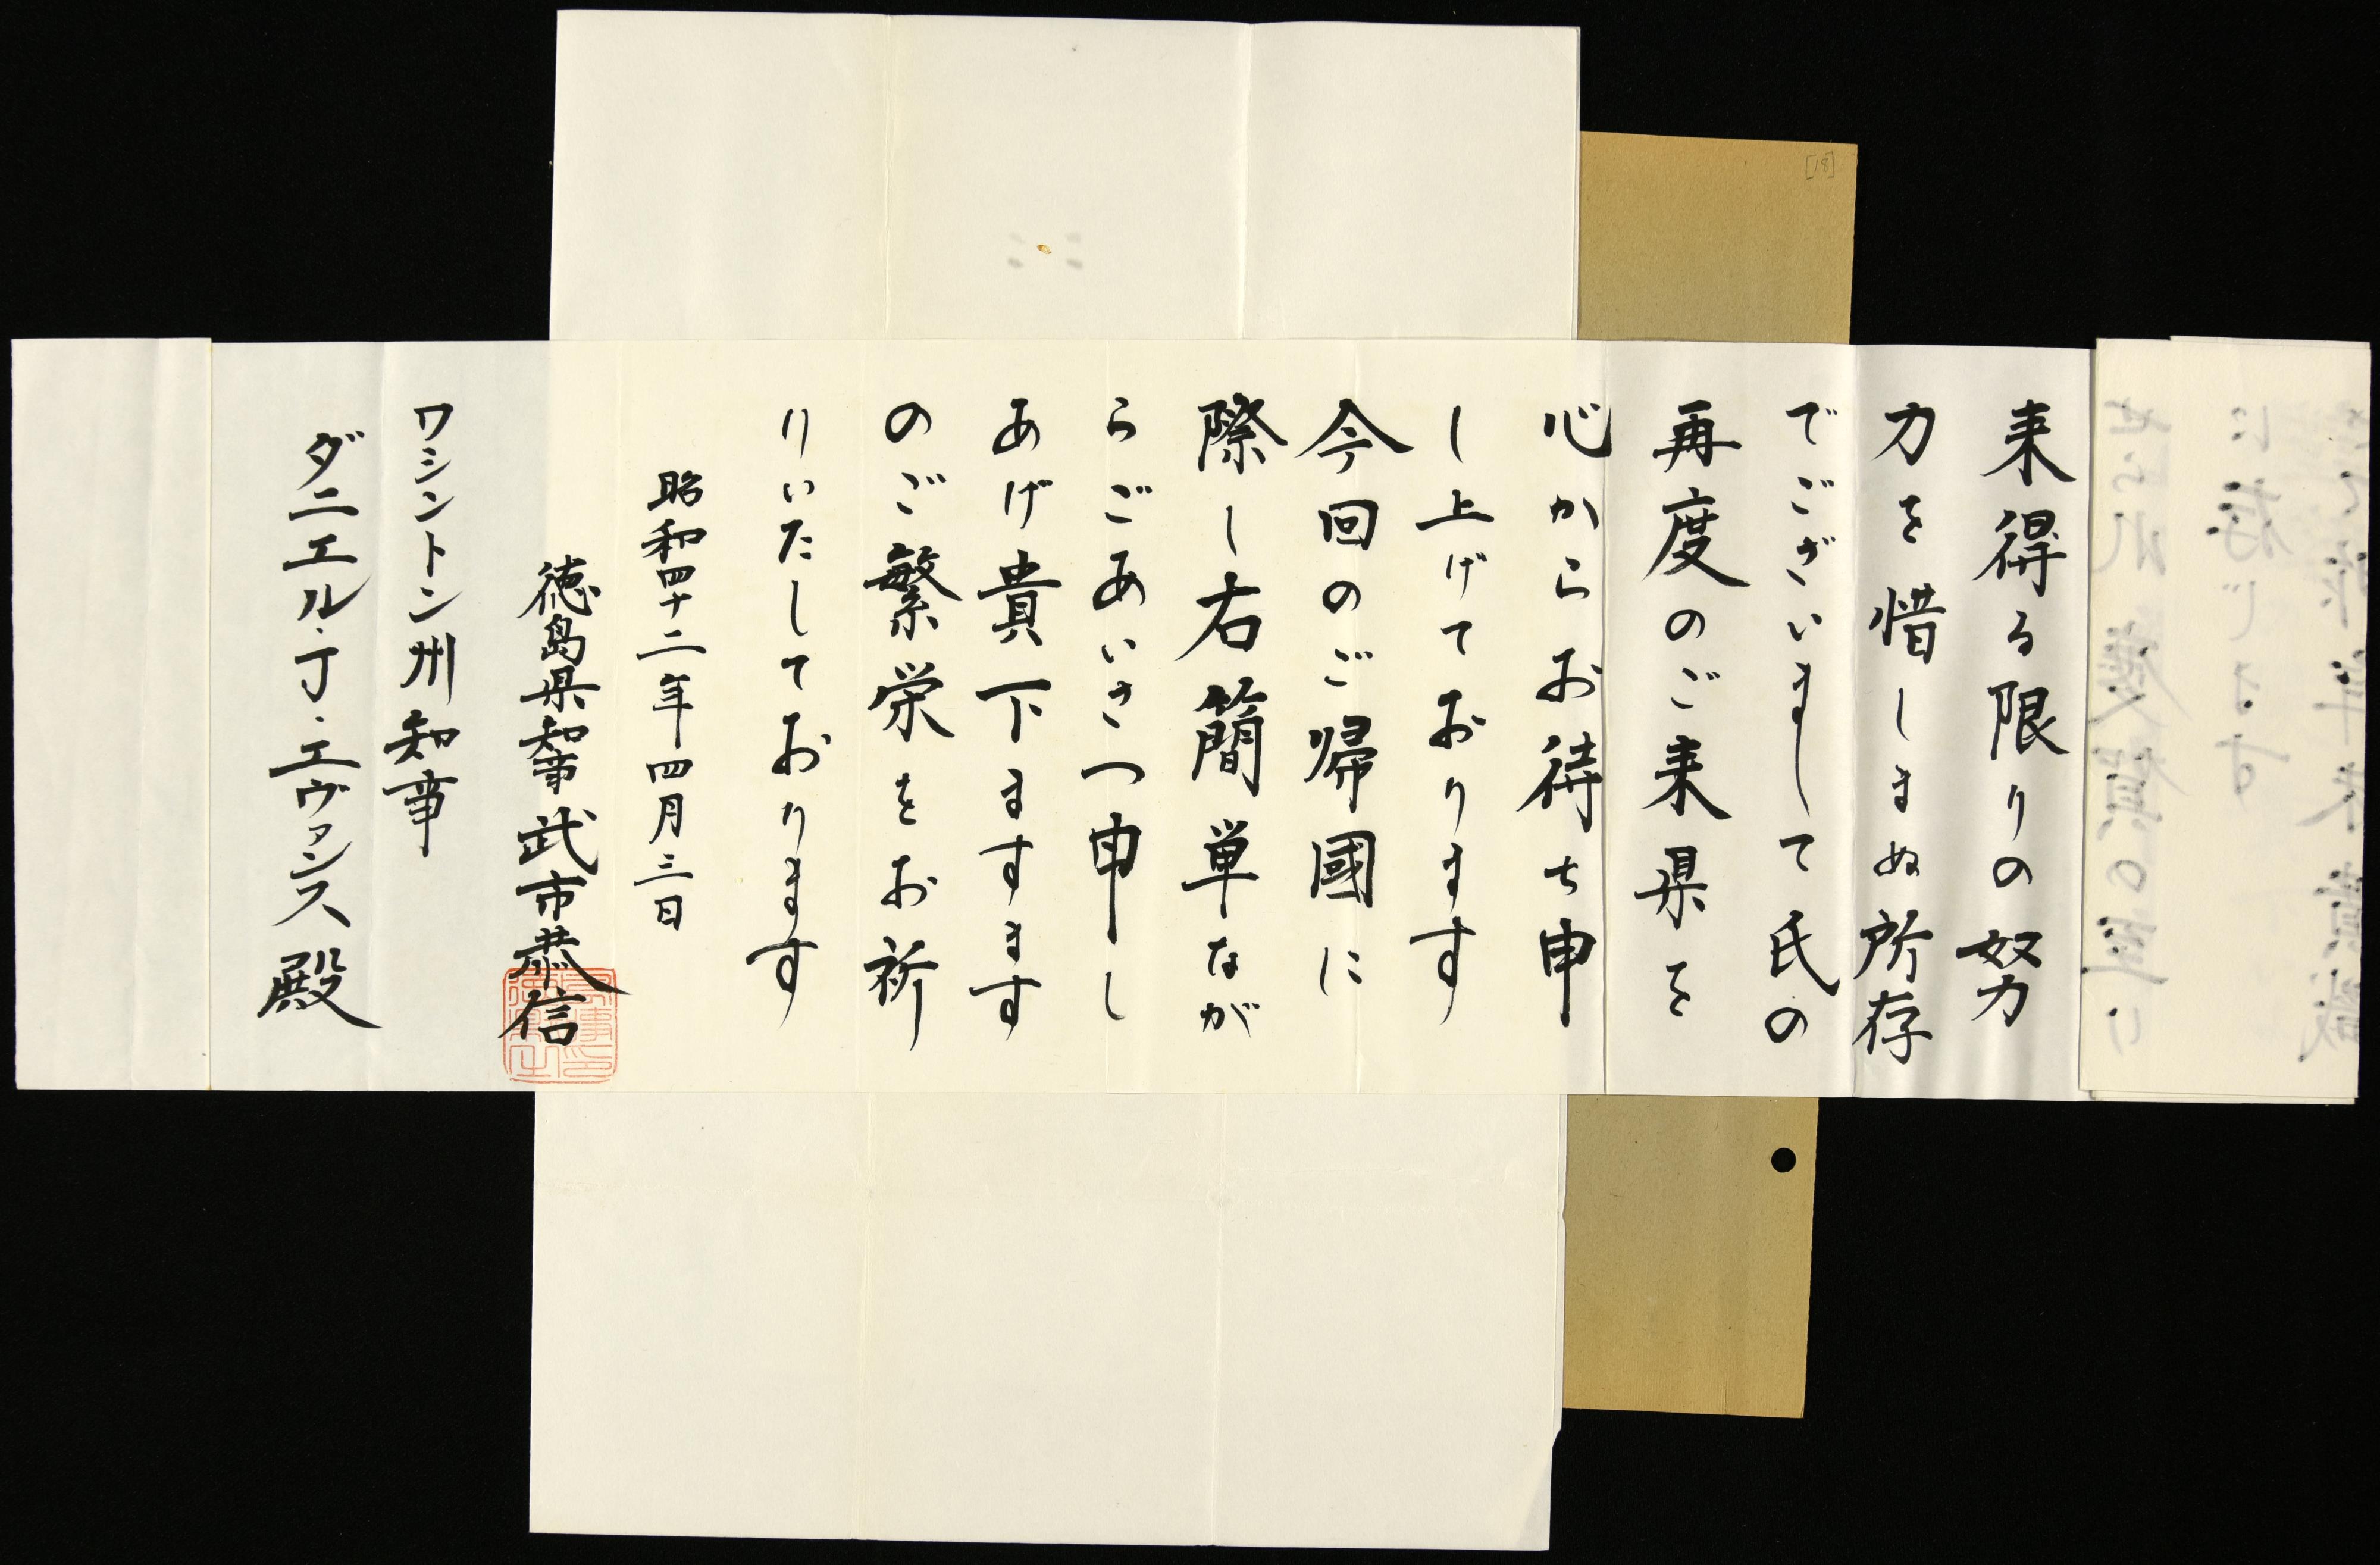 来得る限りの努
力を惜しまぬ所存
でございまして氏の
再度のご来県を
心からお待ち申
し上げております
今回のご帰國に
際し右簡単なが
らごあいさつ申し
あげ貴下ますます
のご繁栄をお祈
りいたしております
昭和四十二年四月三日
徳島県知事武市恭信
ワシントン州知事
ダニエル・丁・エヴァンス殿
[18]